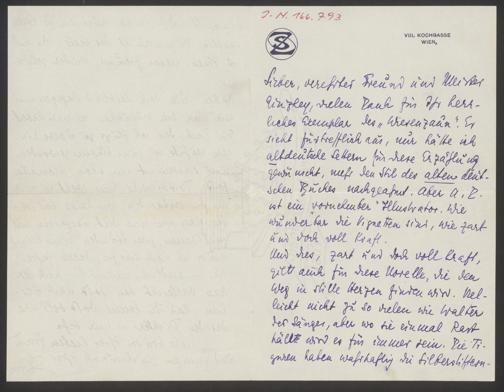 J.-N. 166.793
SZ
VIII. KOCHGASSE
WIEN,
Lieber, verehrter Freund und Meister
Ginzkey, vielen Dank für Ihr herr-
liches Exemplar des „Wiesenzaun“. Es
sieht fürtrefflich aus, nur hätte ich
altdeutsche Lettern für diese Erzählung
gewünscht, den Stil des alten deut-
schen Buches nachgeahmt. Aber A. P.
ist ein vornehmer Illustrator. Wie
wunderbar die Vignetten sind, wie zart
und doch voll Kraft.
Und dies, zart und doch voll Kraft,
gilt auch für diese Novelle, die den
Weg in stille Herzen finden wird. Viel-
leicht nicht zu so vielen wie Walter
der Sänger, aber wo sie einmal Rast
hält wird es für immer sein. Die Fi-
guren haben wahrhaftig die